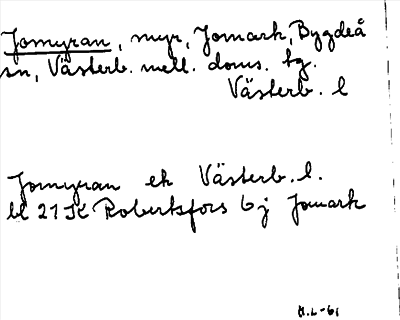 Jomyran, myr, Jomark, Bygdeå
sn, Västerb. mell. doms. tg.
Västerb. l
Jomyran ek Västerb. l.
bl 21 K Robertsfors 6 j Jomark
H.L-61